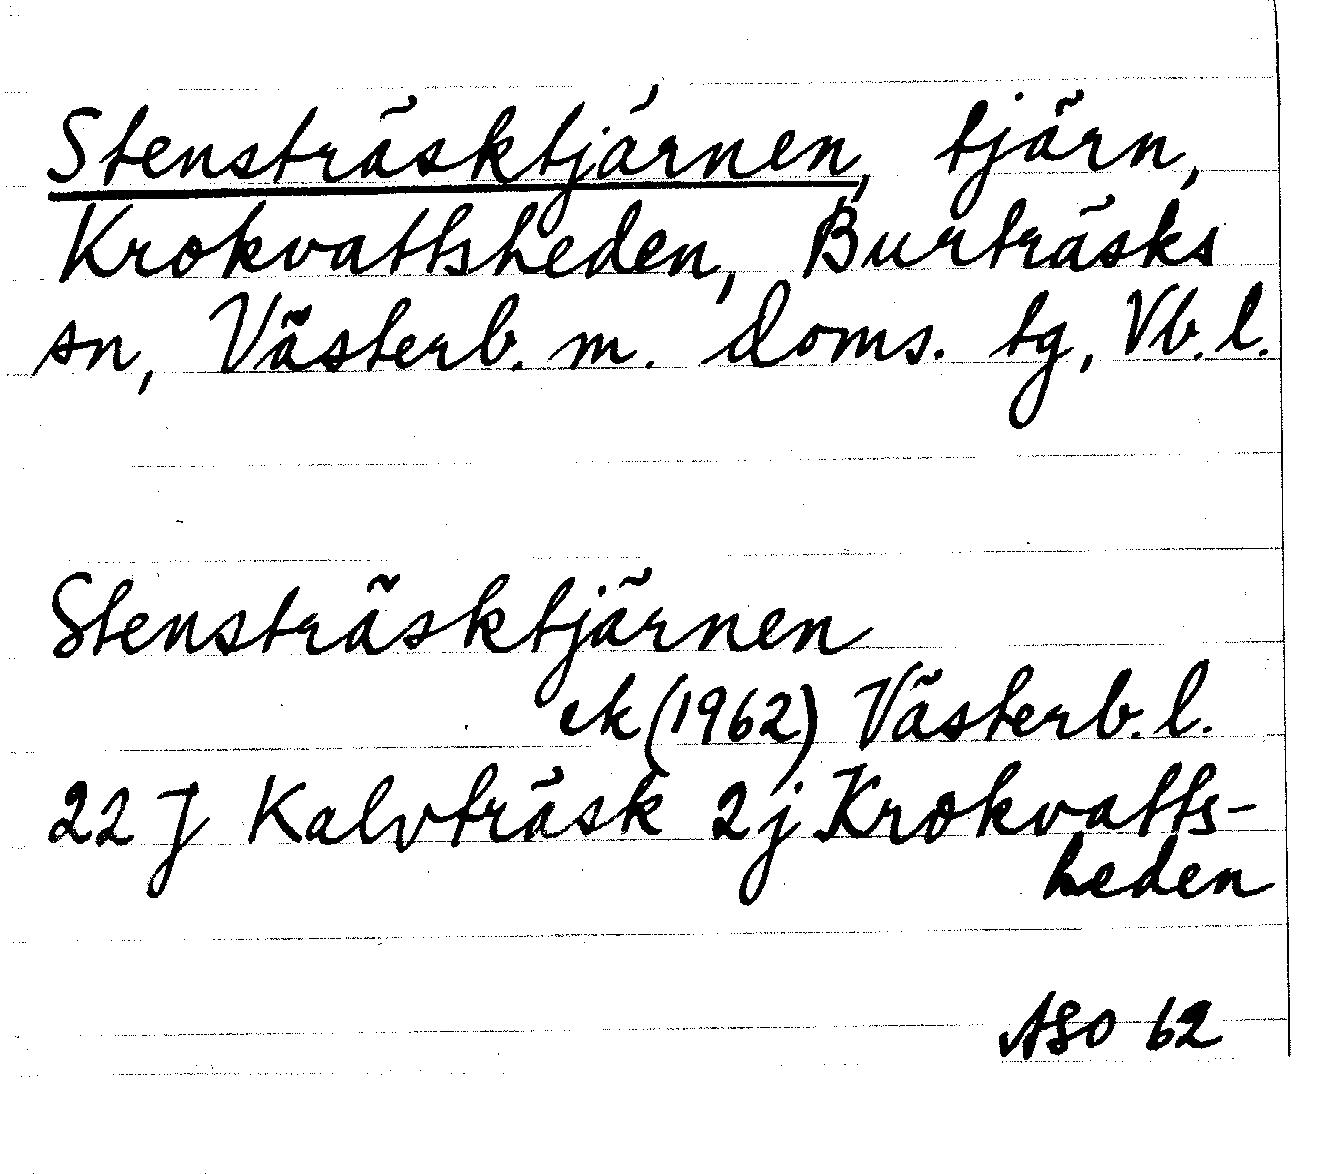 Stensträsktjärnen, tjärn,
Krokvattsheden, Burträsks
sn, Västerb. m. doms. tg, Vb. l.
Stensträsktjärnen
ek (1962) Västerb. l.
22 J Kalvträsk 2j Krokvatts-
heden
ASO 62